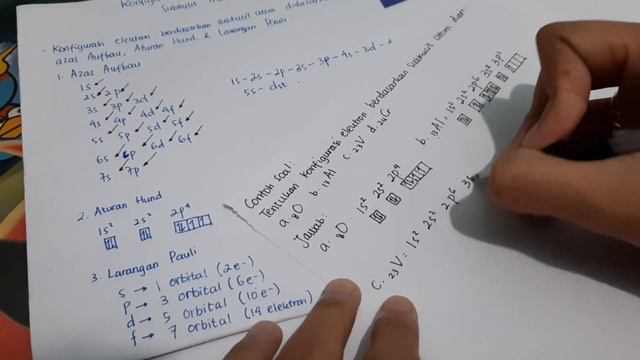 Konfigurasi elektron berdasarkan subkulit atom didasarkan
azas Aufbau, Aturan Hund & Larangan Pauli.
1. Azas Aufbau
1s
2s 2p
3s 3p 3d
4s 4p 4d 4f
5s 5p 5d 5f
6s 6p 6d 6f
7s 7p
1s - 2s - 2p - 3s - 3p - 4s - 3d -
5s - dst.
2. Aturan Hund
1s² 2s² 2p⁴
3. Larangan Pauli
s → 1 orbital (2e-)
p → 3 orbital (6e-)
d → 5 orbital (10e-)
f → 7 orbital (14 elektron)
Contoh soal:
Tentukan konfigurasi elektron berdasarkan subkulit atom dari:
a. 8O b. 13Al c. 23V d. 24Cr
Jawab:
a. 8O: 1s² 2s² 2p⁴
b. 13Al: 1s² 2s² 2p⁶ 3s² 3p¹
c. 23V: 1s² 2s² 2p⁶ 3s